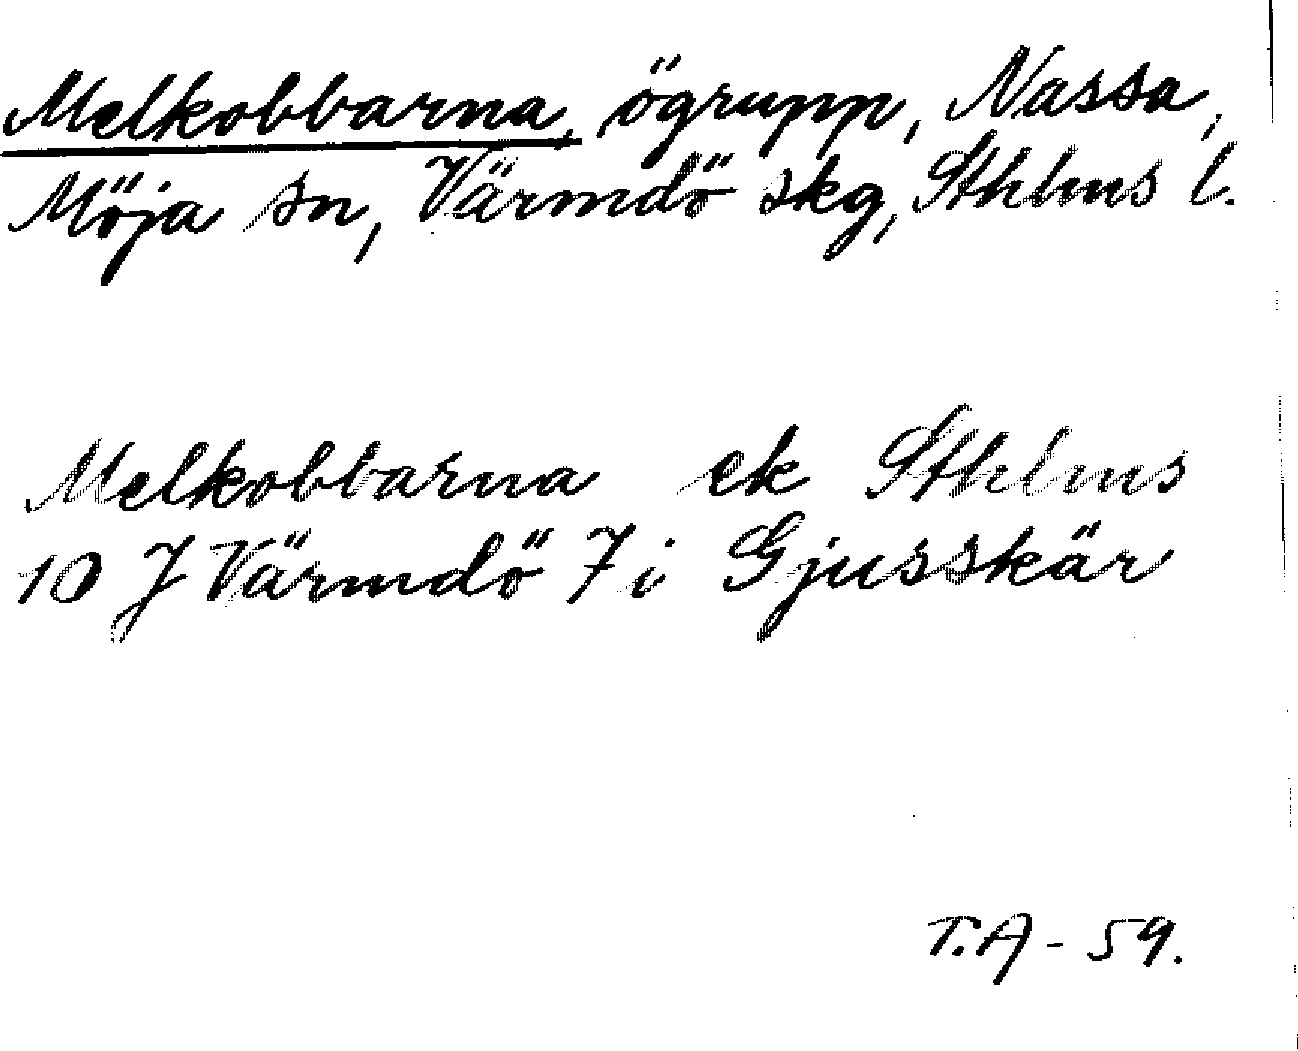 Melkobbarna, ögrupp, Nassa,
Möja sn, Värmdö skg, Sthlms l.
Melkobbarna ek Sthlms
10 J Värmdö 7 i Gjusskär
T.A - 59.